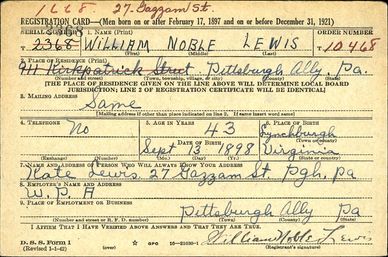 1668. 27 Gazzam St.
REGISTRATION CARD—(Men born on or after February 17, 1897 and on or before December 31, 1921)
SERIAL NUMBER 1. NAME (Print) ORDER NUMBER
2368 WILLIAM NOBLE LEWIS 10468
(First) (Middle) (Last)
2. PLACE OF RESIDENCE (Print)
911 Kirkpatrick Street, Pittsburgh Ally, Pa.
(Number and street) (Town, township, village, or city) (County) (State)
[THE PLACE OF RESIDENCE GIVEN ON THE LINE ABOVE WILL DETERMINE LOCAL BOARD
JURISDICTION; LINE 2 OF REGISTRATION CERTIFICATE WILL BE IDENTICAL]
3. MAILING ADDRESS
Same
[Mailing address if other than place indicated on line 2. If same insert word same]
4. TELEPHONE 5. AGE IN YEARS 6. PLACE OF BIRTH
No 43 Lynchburgh
DATE OF BIRTH (Town or county)
Sept 13 1898 Virginia
(Exchange) (Number) (Mo.) (Day) (Yr.) (State or country)
7. NAME AND ADDRESS OF PERSON WHO WILL ALWAYS KNOW YOUR ADDRESS
Kate Lewis, 27 Gazzam St Pgh, Pa
8. EMPLOYER'S NAME AND ADDRESS
W. P. A
9. PLACE OF EMPLOYMENT OR BUSINESS
Pittsburgh Ally Pa
(Number and street or R. F. D. number) (Town) (County) (State)
I AFFIRM THAT I HAVE VERIFIED ABOVE ANSWERS AND THAT THEY ARE TRUE.
D. S. S. Form 1
(Revised 1-1-42) GPO William Noble Lewis